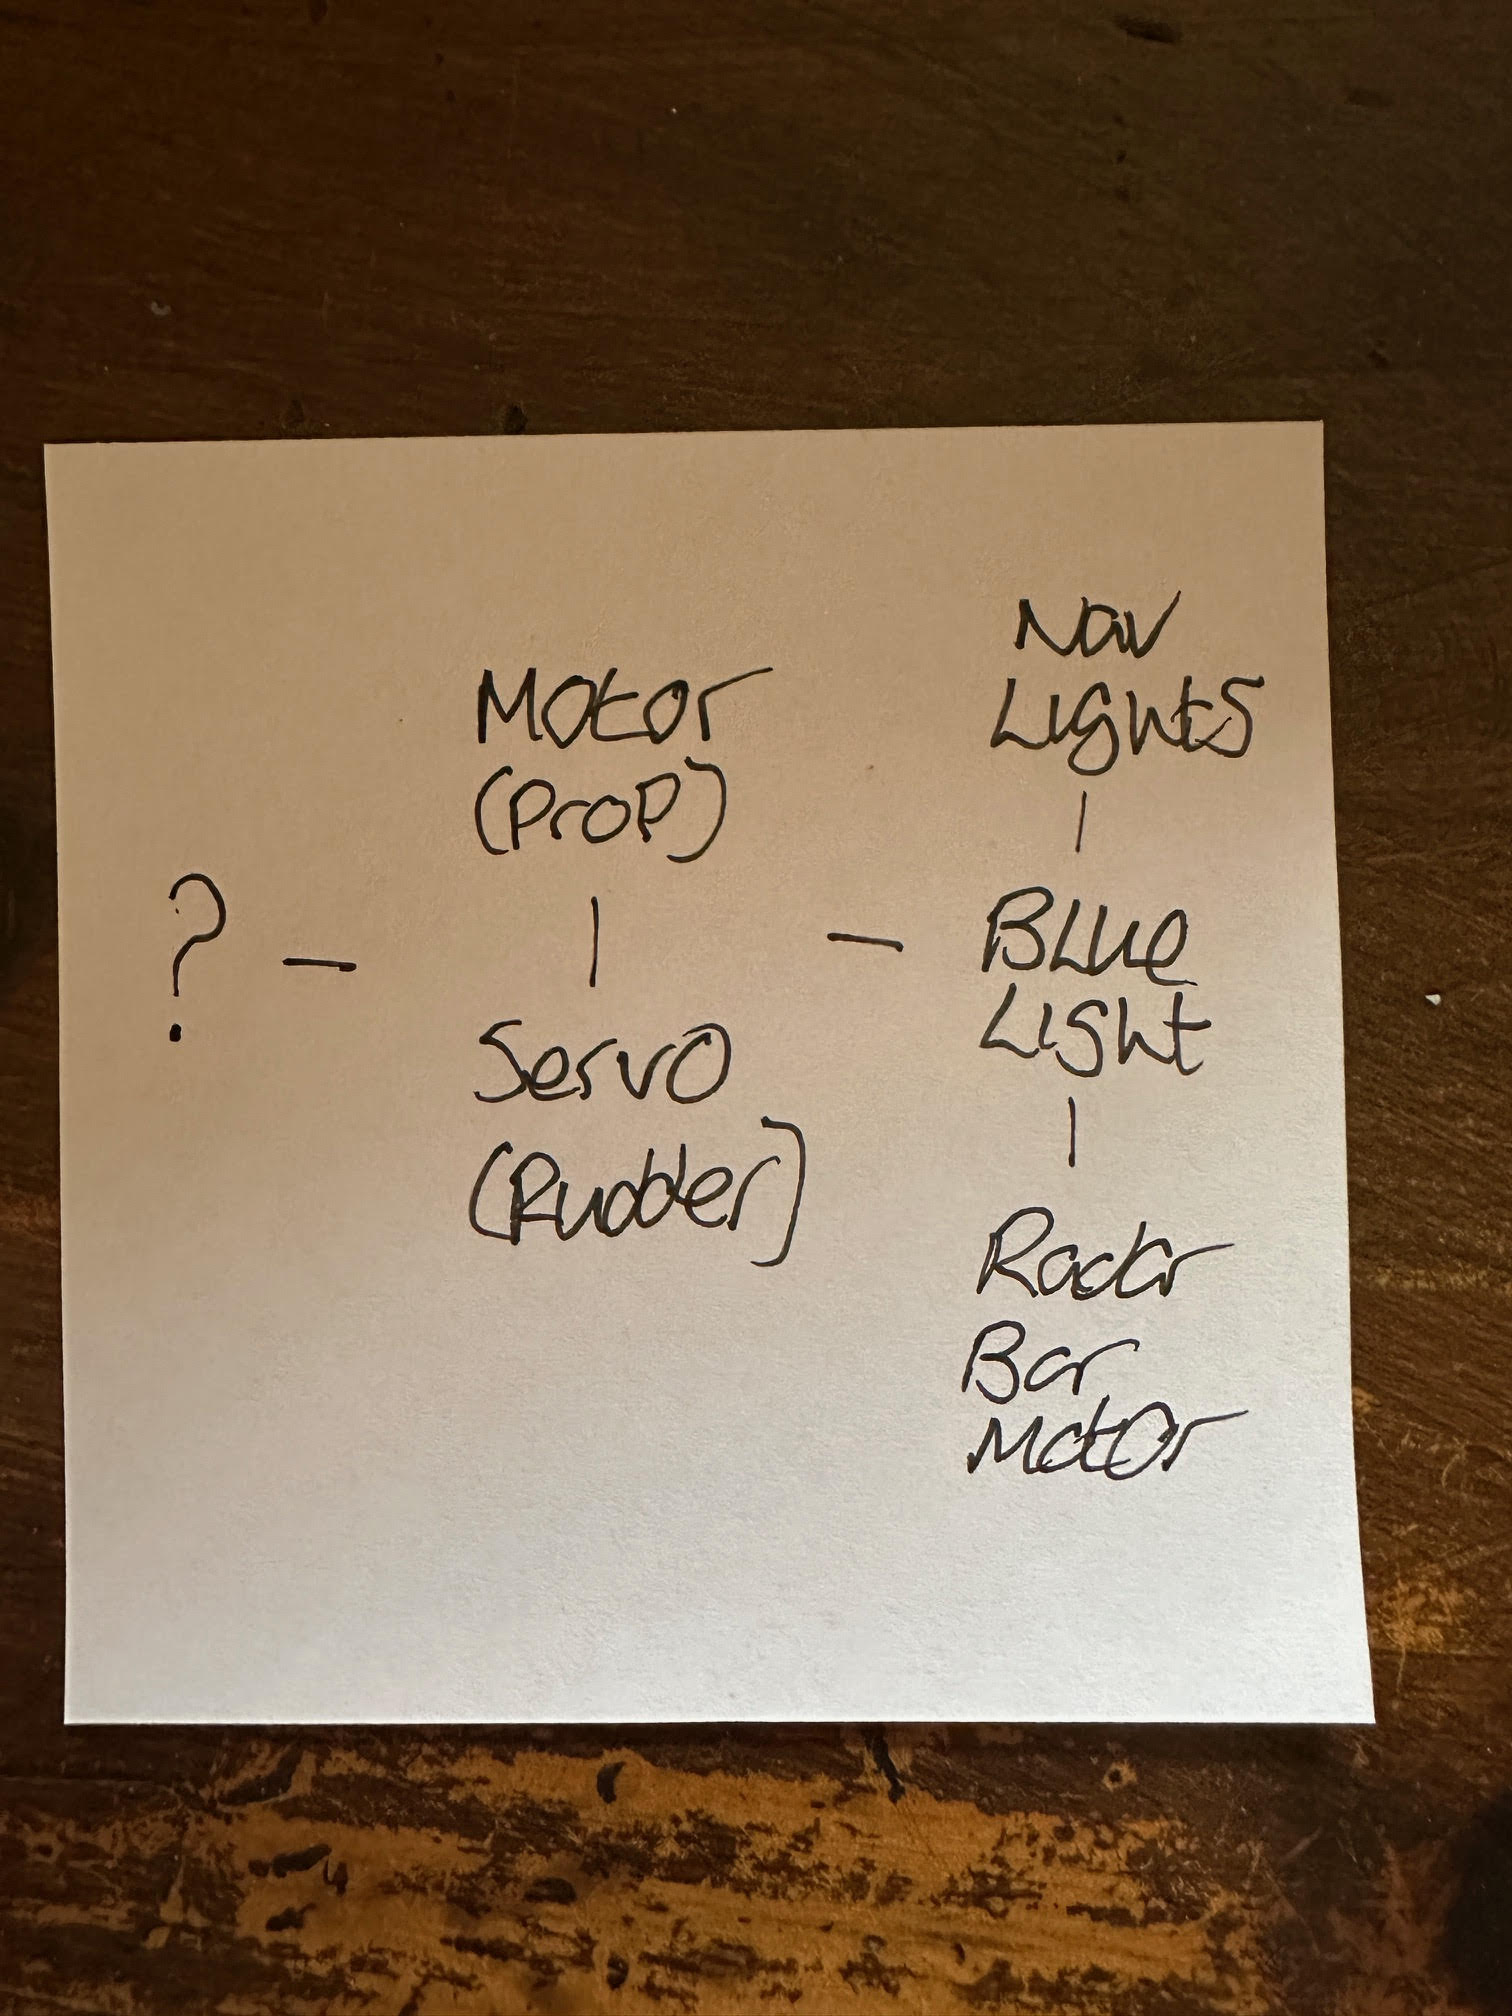 ?
-
Motor
(Prop)
|
Servo
(Rudder)
-
Nav
Lights
|
Blue
Light
|
Radar
Bar
Motor